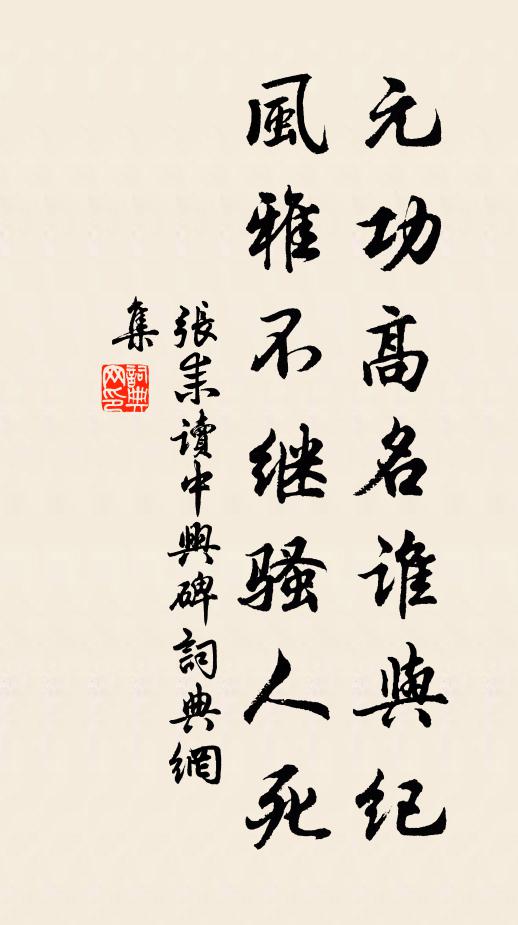 元功高名誰與紀
風雅不継騷人死
張耒讀中興碑詞典網
集
詞典
网印